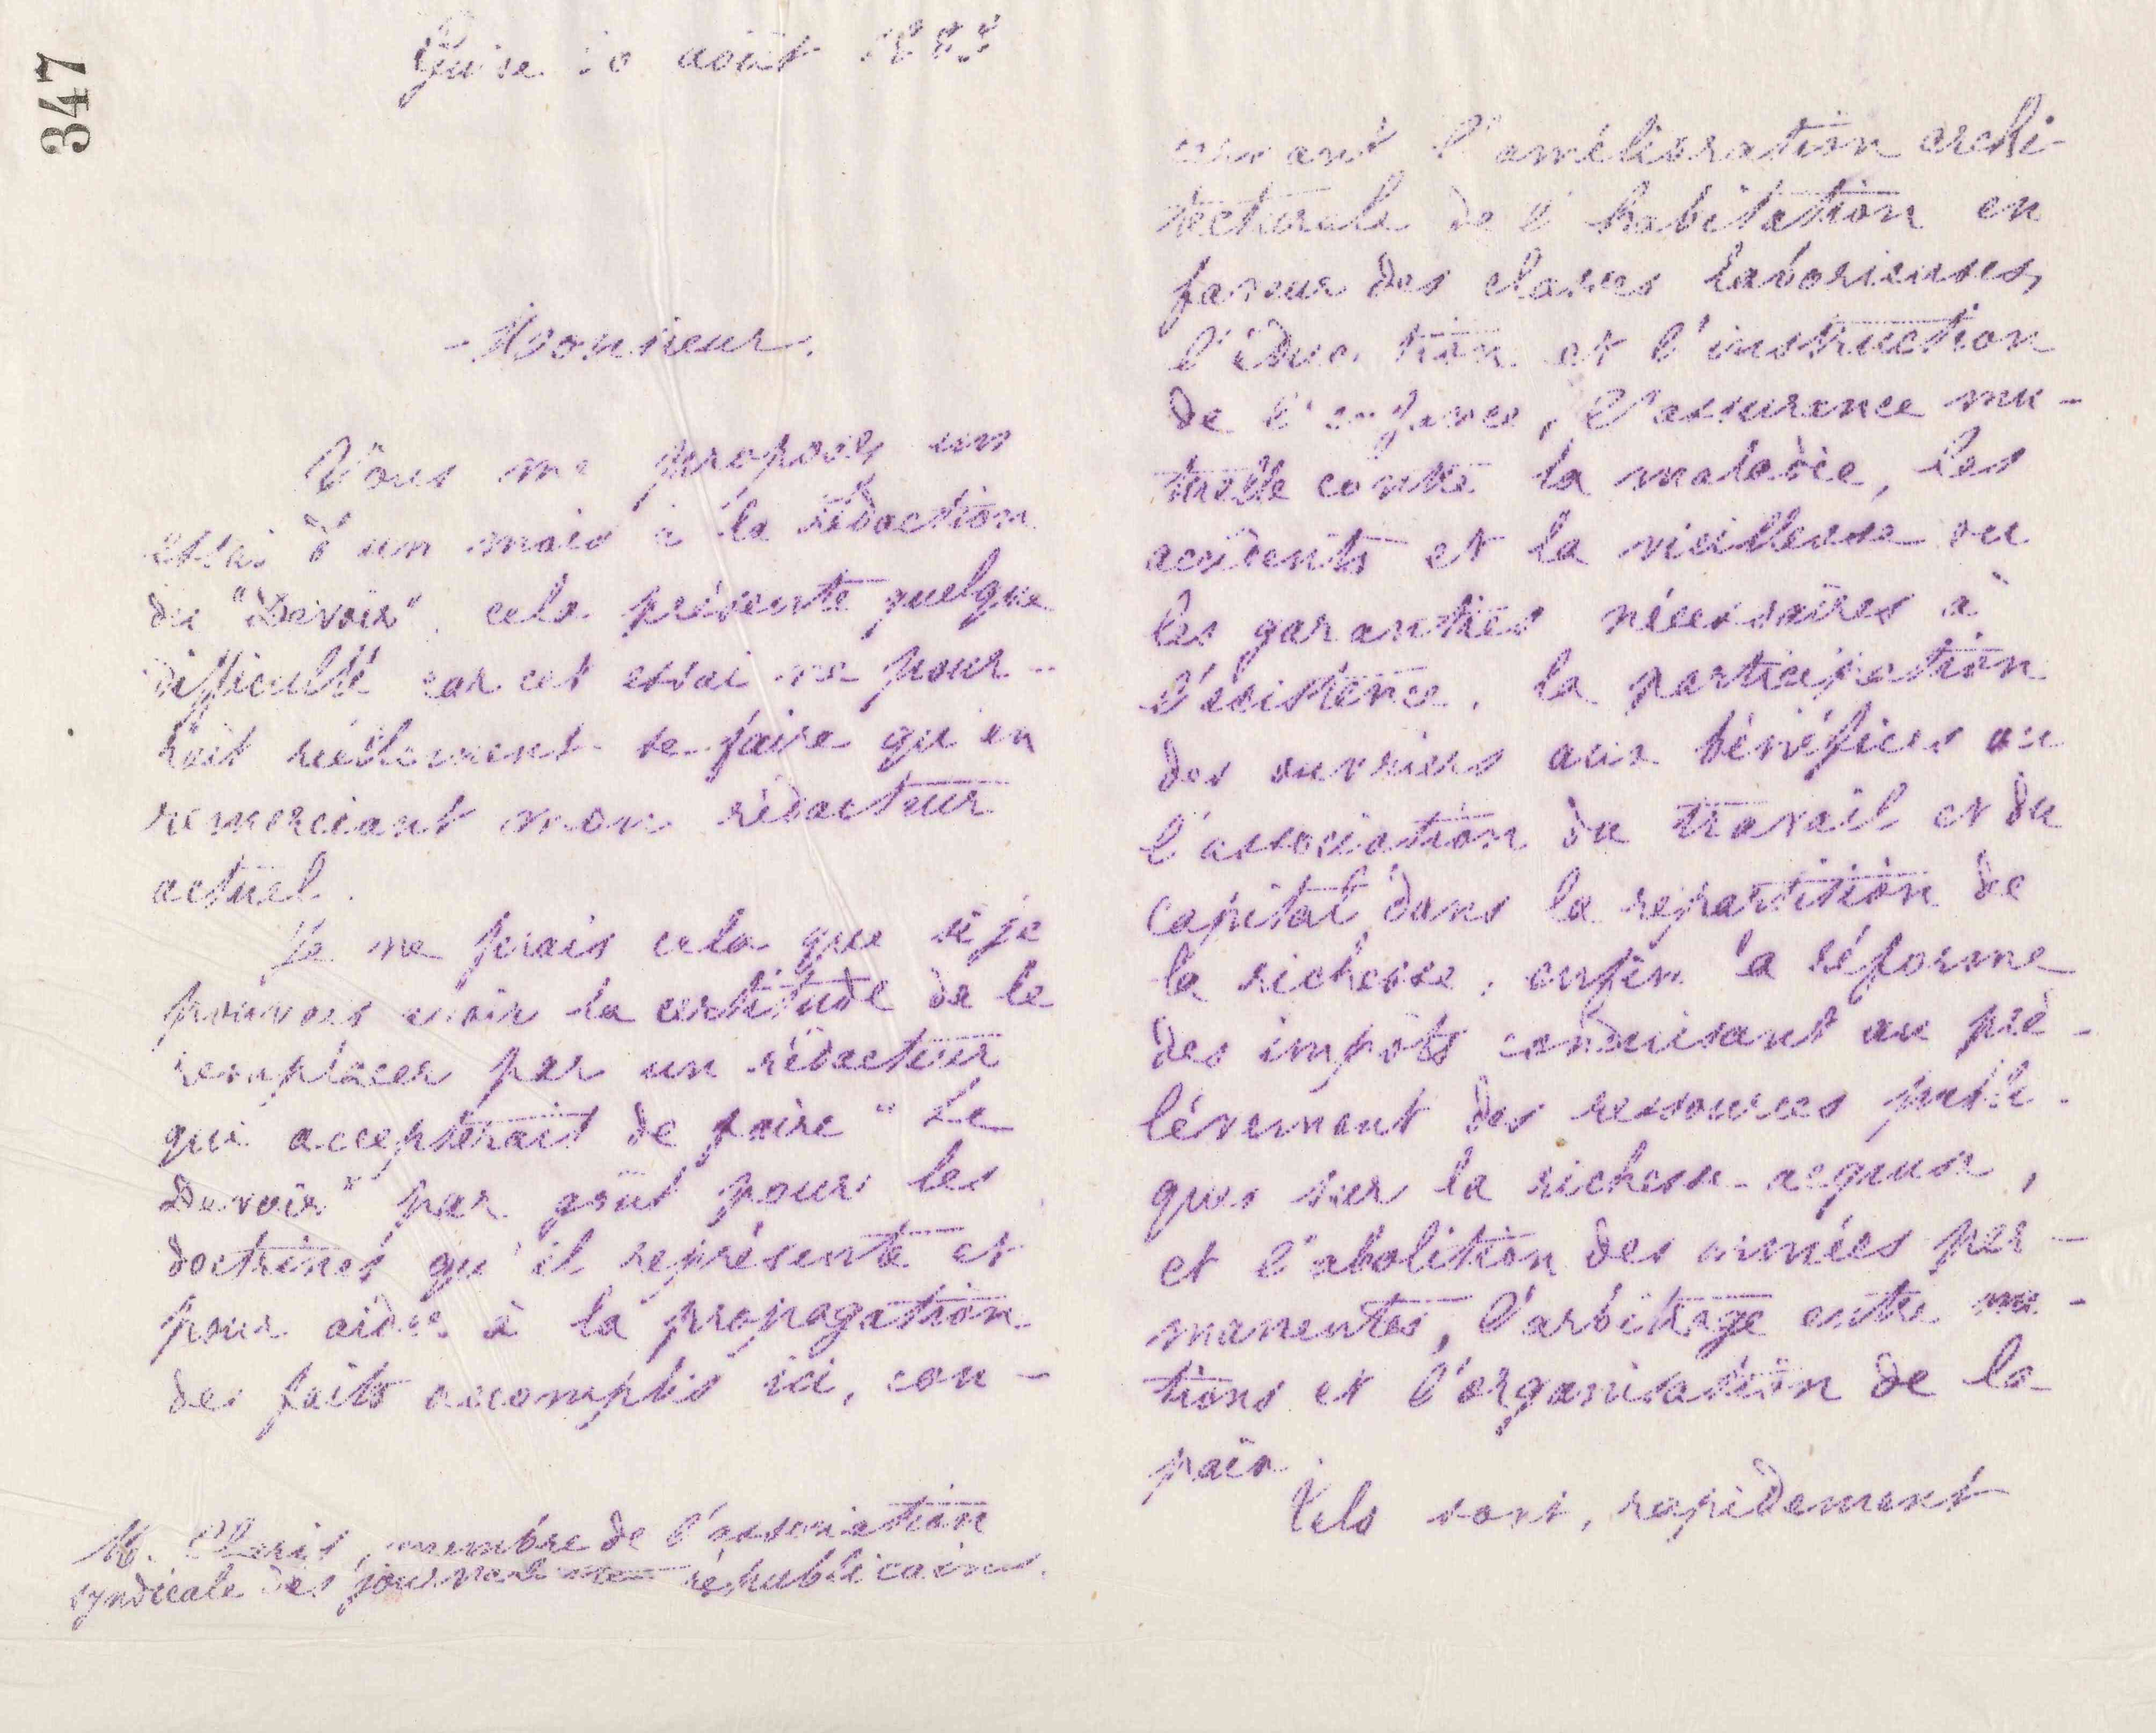 347
Guise août
Monsieur,
Vous me proposez un
essai d'un mois à la rédaction
du "Devoir". cela présente quelque
difficulté car cet essai ne pour-
rait réellement se faire qu'en
remerciant mon rédacteur
actuel.
Je ne ferais cela que si je
pouvais avoir la certitude de le
remplacer par un rédacteur
qui accepterait de faire "Le
Devoir" par goût pour les
doctrines qu'il représente et
pour aider à la propagation
des faits accomplis ici, con-
M. membre de l'association
syndicale des journalistes républicains.
cernant l'amélioration archi-
tecturale de l'habitation en
faveur des classes laborieuses,
l'éducation et l'instruction
de l'enfance, l'assurance mu-
tuelle contre la maladie, les
accidents et la vieillesse ou
les garanties nécessaires à
l'existence, la participation
des ouvriers aux bénéfices ou
l'association du travail et du
capital dans la repartition de
la richesse, enfin la réforme
des impôts conduisant au pré-
lévement des ressources publi-
ques sur la richesse acquise,
et l'abolition des armées per-
manentes, l'arbitrage entre na-
tions et l'organisation de la
paix.
Tels sont, rapidement